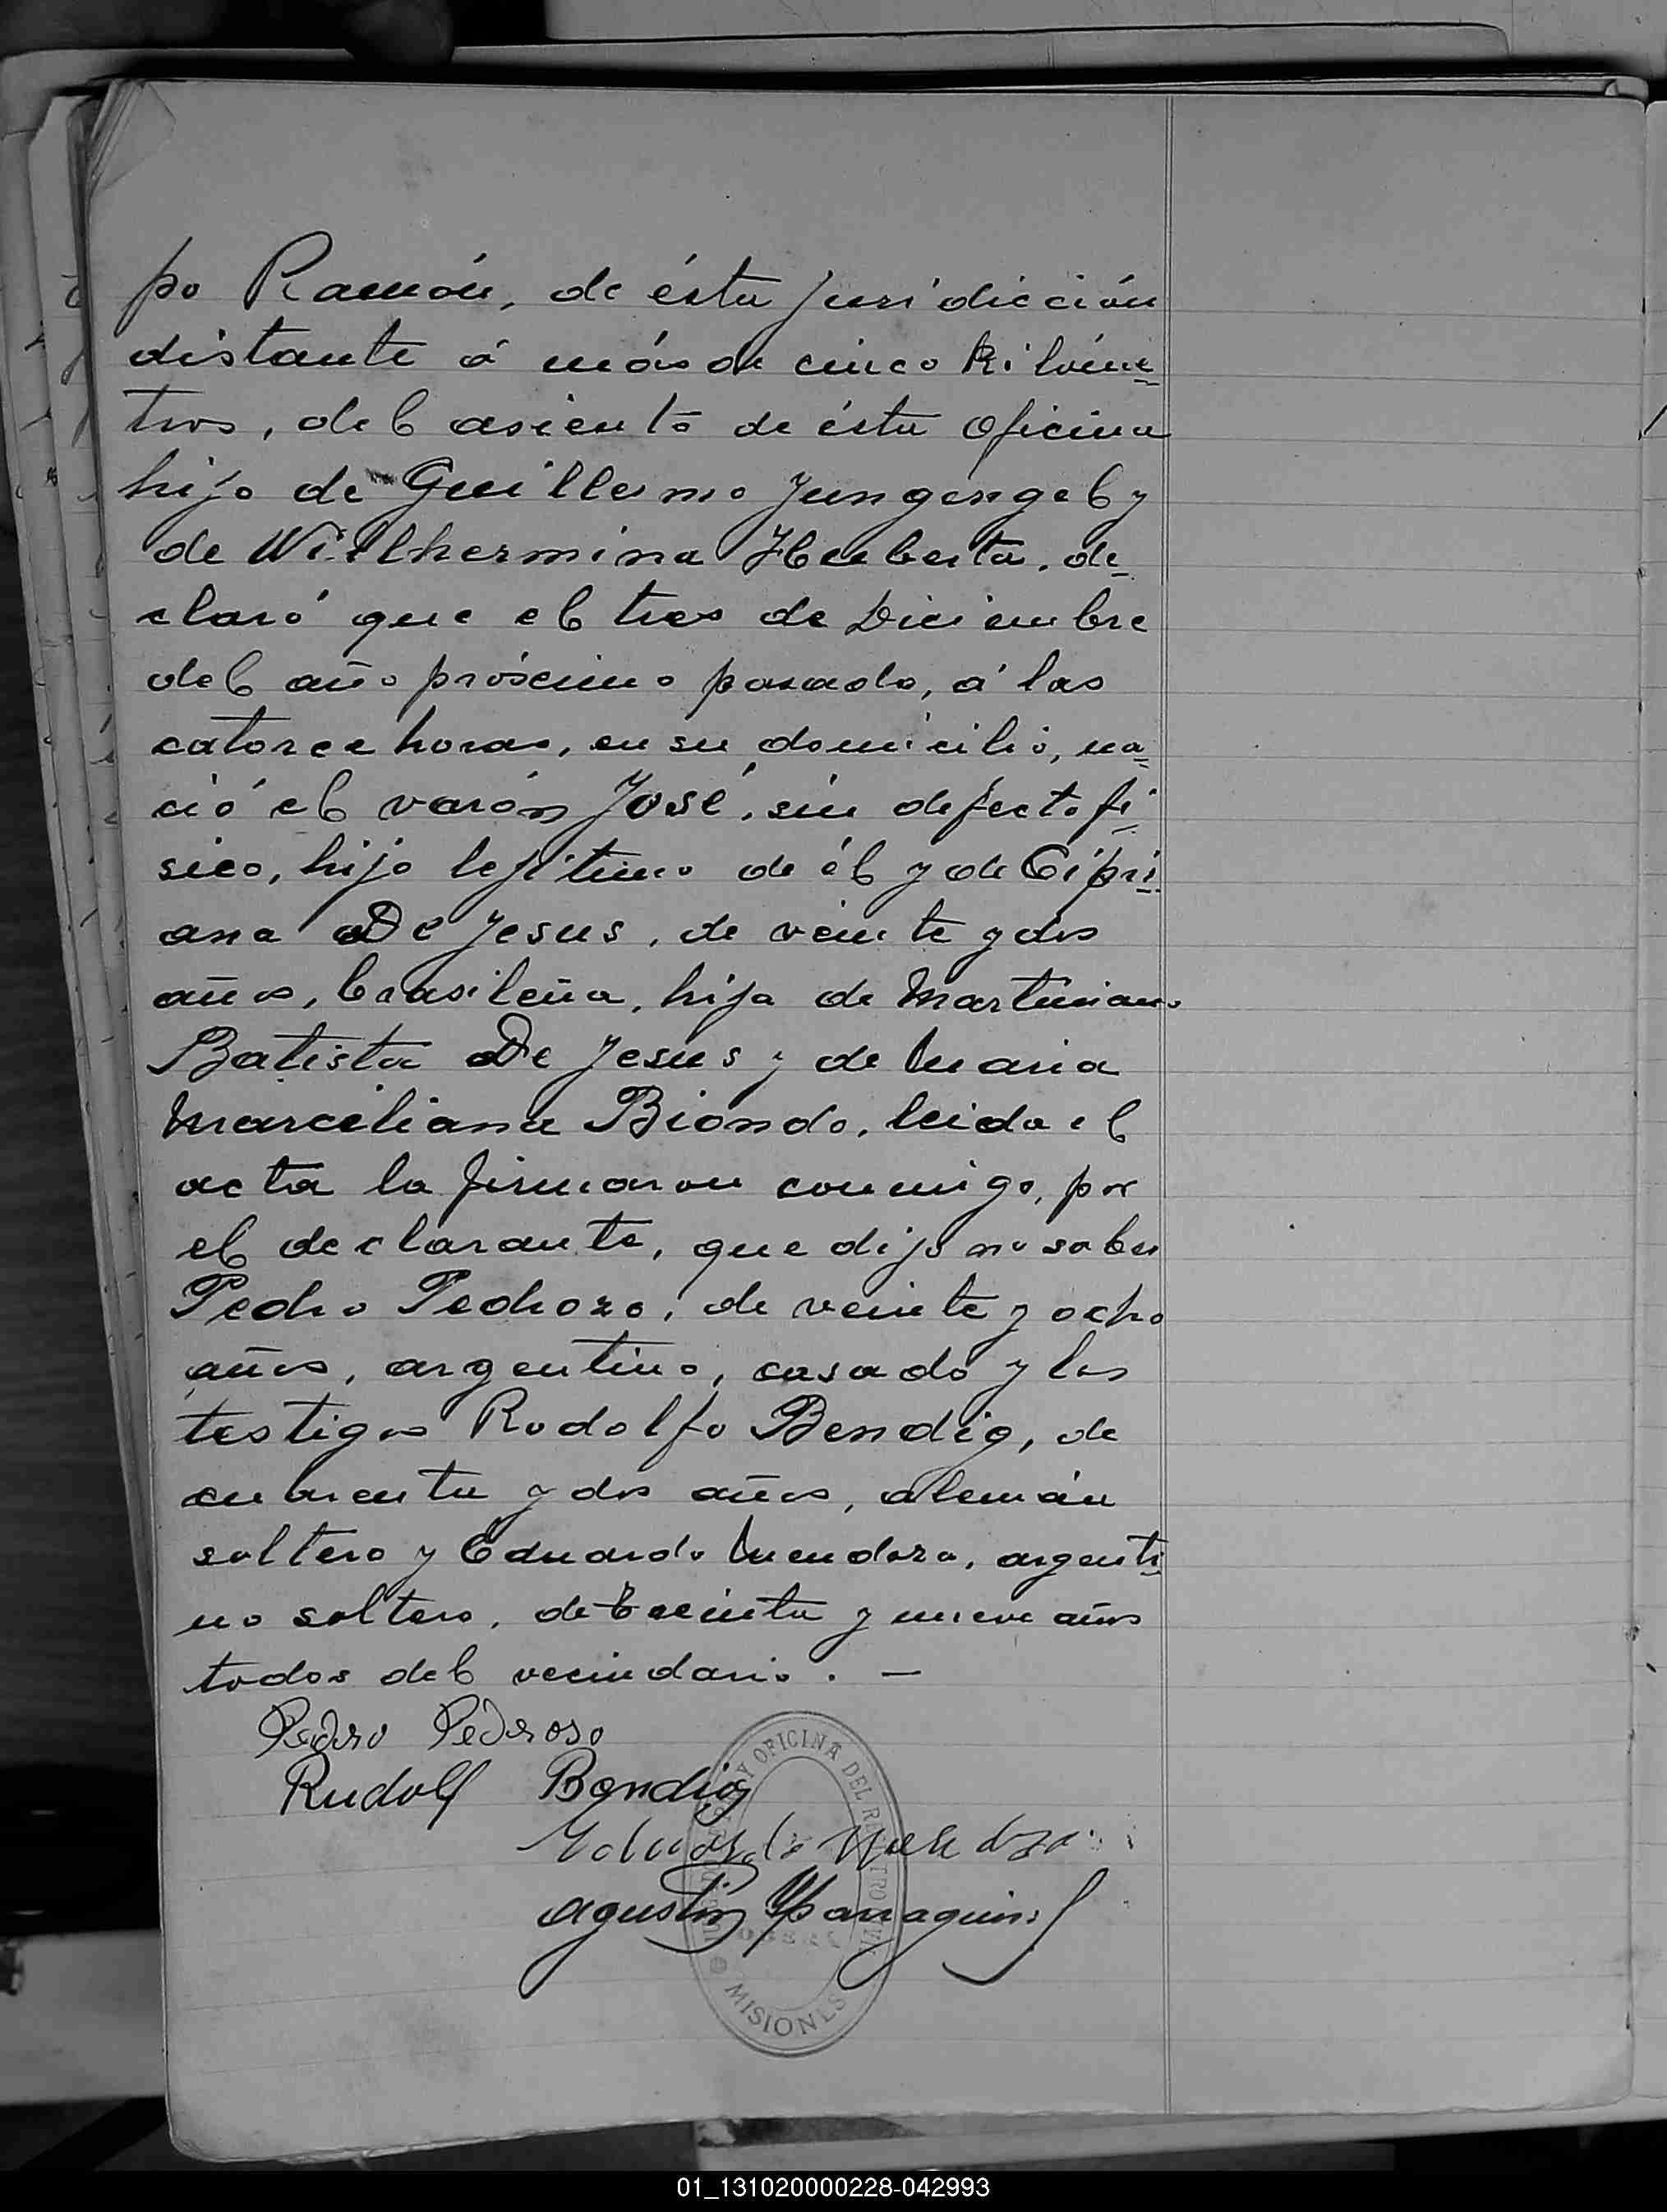 po Ramón, de ésta jurisdicción
distante á más de cinco Kilóme=
tros, del asiento de ésta Oficina
hijo de Guillermo Jungengel y
de Willhermina Hbeberta, de=
claró que el tres de Diciembre
del año próximo pasado, á las
catorce horas, en su domicilio, na=
ció el varón José, sin defecto fí=
sico, hijo lejítimo de él y de Cipri=
ana De Jesus, de veinte y dos
años, brasileña, hija de Martiniano
Batista De Jesus y de Maria
Marceliana Biondo, leida el
acta la firmaron conmigo, por
el declarante, que dijo no saber
Pedro Pedrozo, de veinte y ocho
años, argentino, casado y los
testigos Rodolfo Bendig, de
cuarenta y dos años, alemán
soltero y Eduardo Mendoza, argenti=
no soltero, de treinta y nueve años
todos del vecindario. —
Pedro Pedroso
Rudolf Bendig
Eduardo Mendoza
Agustin
Y OFICINA DEL REGISTRO CIVIL
MISIONES
01_131020000228-042993